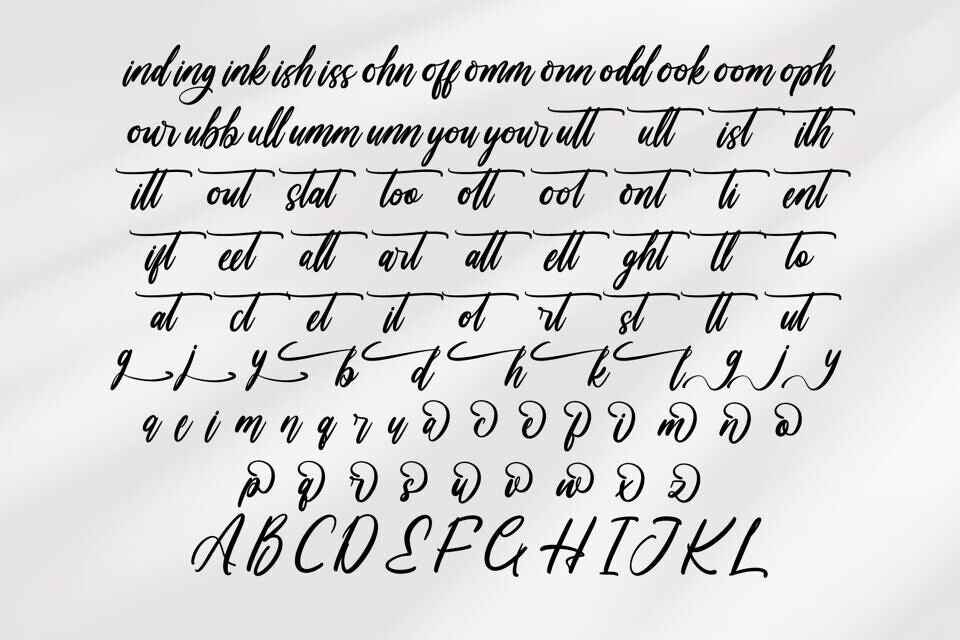 ind ing ink ish iss ohn off omm onn odd ook oom oph
our ubb ull umm unn you your utt ult ist ith
ill out stat too ott oot ont ti ent
ift eet alt art att ett ght tl to
at ct et it ot rt st tt ut
g j y b d h k l g j y
a e i m n q r u a c e f i m n o
p q r s u v w x z
A B C D E F G H I J K L